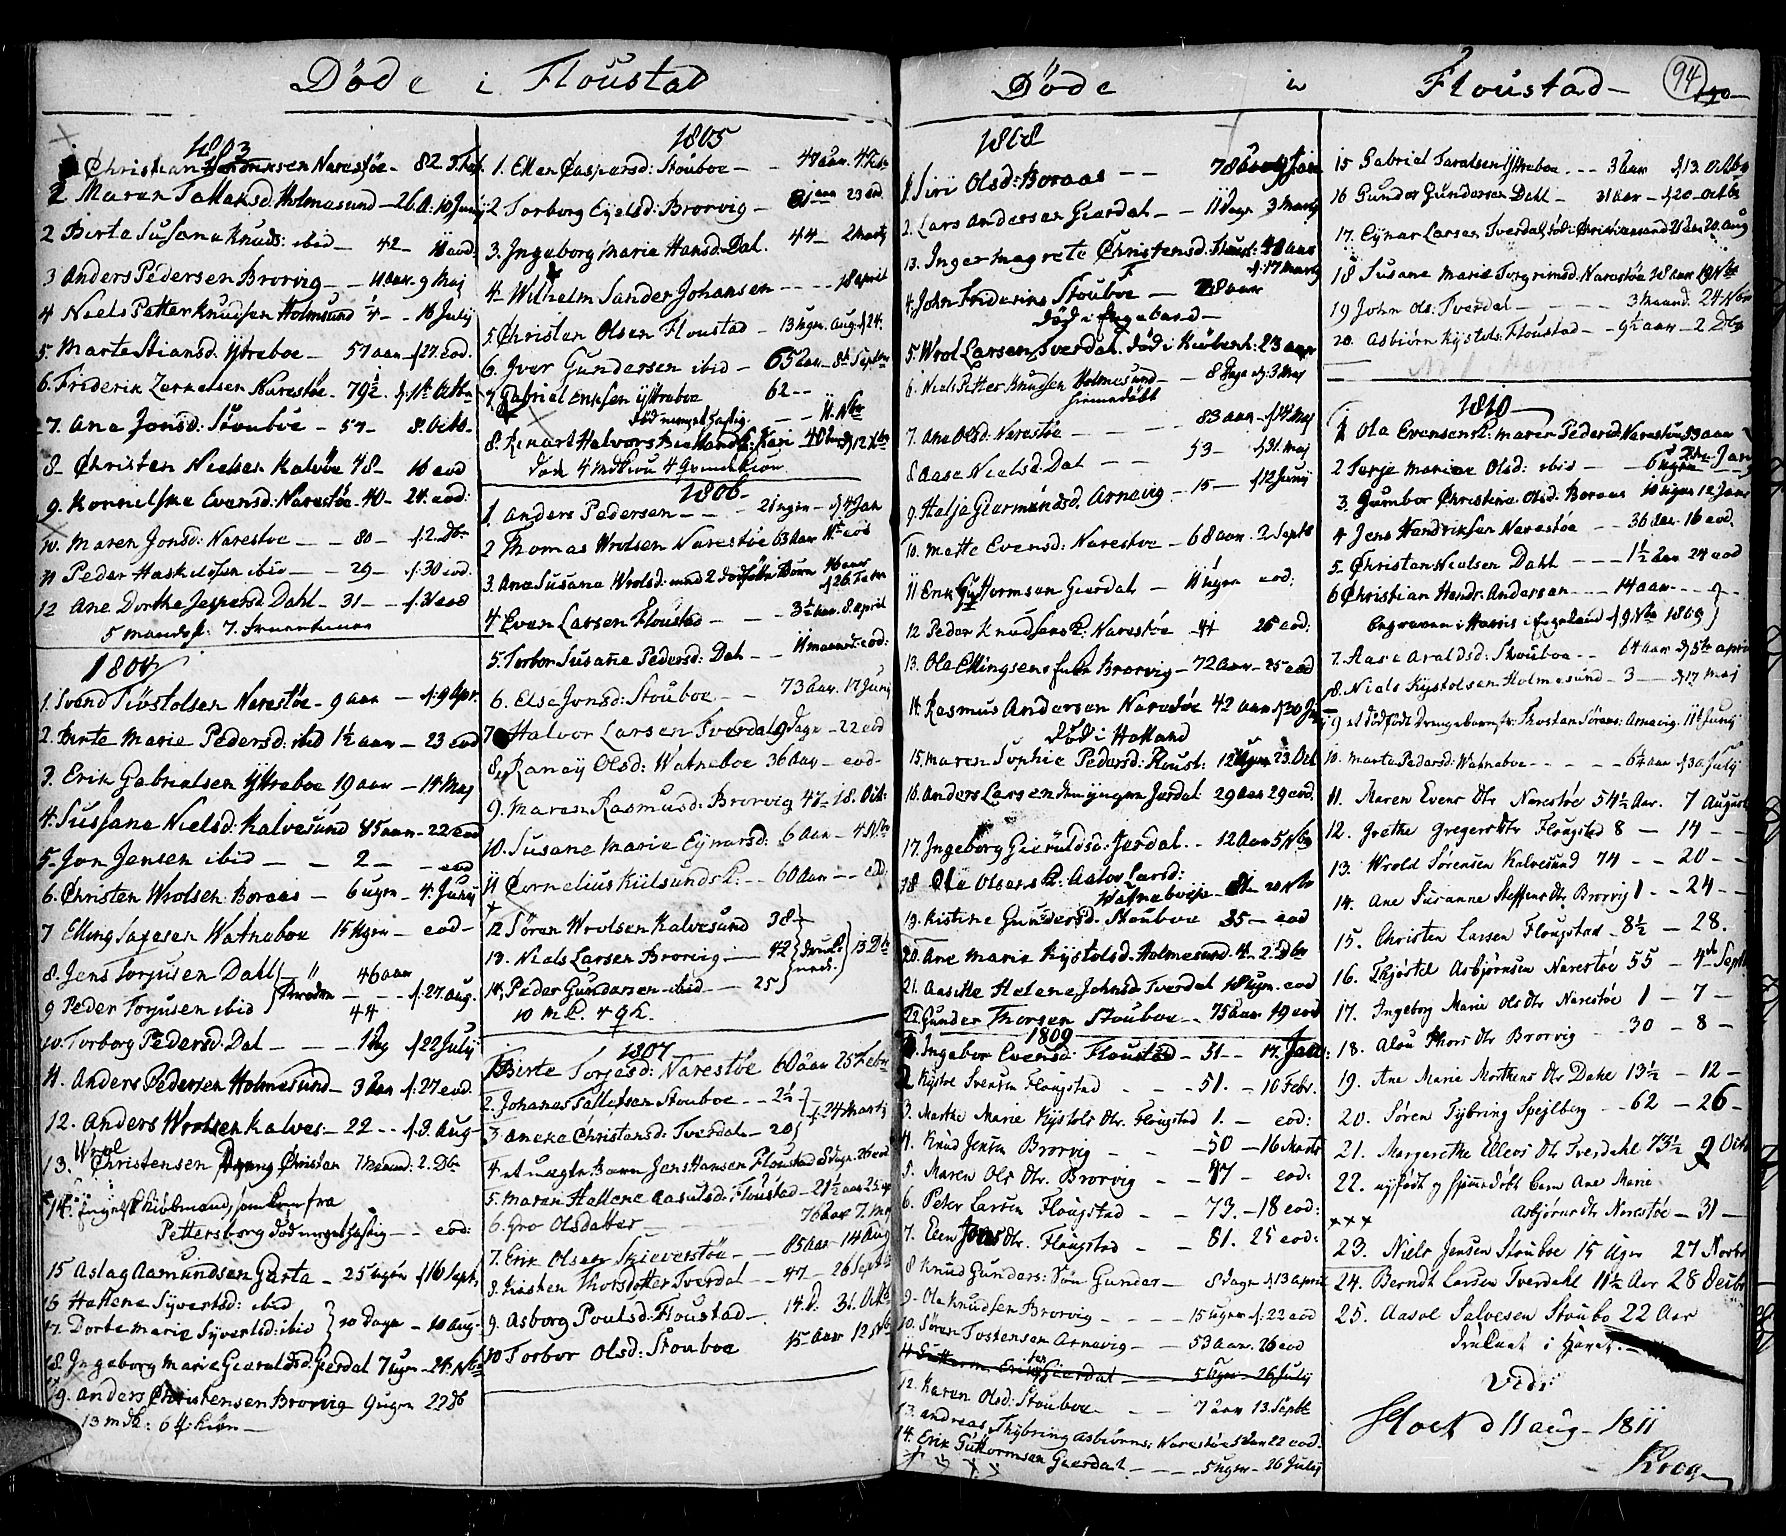 Døde i Floustad
1803
Christian Narestøe - 82
2 Maren Tallaksd. Holmesund - 26 A: 10 Junij
2 Birte Susana Knuds: ibid - 42 - eod:
3 Anders Pedersen Brorvig - 11 aar. 9 Maj
4 Niels Petter Knudsen Holmsund 16 Julij
5. Marte Stiansd. Yttreboe - 57 aar - 27. eod.
6. Friderik Narestøe. 79½.
7. Ane Jonsd: Stouboe - 57 - 8. Octo.
8 - Christen Nielsen Kalvøe 48 - 16 eod
9. Evensd: Narestøe - 40 - 24. eod:
10. Maren Jonsd: Narestøe - - 80 - 2. Dbr
11 Peder ibid - - 29 - 30 eod.
12 Ane Dorthe Jespersd. Dahl - 31 - 31 eod
5 mandkj: 7.
1804
1. Svend Tiøstolsen Narestøe - 9 aar - 9 Apr.
2. Birte Marie Pedersd: ibid 1½ aar - 23 eod
3. Erik Gabrielsen Yttreboe 19 aar - 14 Maj
4. Sussane Nielsd: Kalvesund 85 aar - 22 eod
5. Jon Jensen ibid - - 2 - eod
6. Christen Wrolsen Boraas - 6 ugr - 4. Junij
7 Elling Watneboe 15 Ugr - eod -
8. Jens Torjusen Dahl - " 46 aar
9 Peder Torjusen ibid 44 27 aug.
10. Torborg Pedersd. Dal - - - 22 Julij
11. Anders Pedersen Holmesund - 3 aar 27 eod.
12. Anders Wrolsen Kalves - 22 - - 9. Aug -
Wrol
13. Christensen Christen 2. Dbr
14. Engelsk Kiøbmand, som kom fra
Pettersborg død meget hastig - - eod:
15 Aslag Aamundsen Garta - 25 16 Sept:
16 Hellene Syvertsd: ibid
17. Dorte Marie Syvertsd: ibid 10 Dage - 10 Aug -
18. Ingeborg Marie Gierdal 7 ugr - 24. Nbr
19. Anders Christensen Brorvig 9 ugr 22 db
13 mk: 6 q: kiøn -
1805
1. Ellen Caspersd: Stouboe - - 47 aar. 4 Febr
2 Torborg Brorvig - 81 aar 23 eod
3. Ingeborg Marie Hansd. Dal. 44 - 2 Martj
4 - Wilhelm Sander Johansen - - - - 18 april
5. Christen Olsen Floustad - 13 ugr. Aug. 24.
6. Iver Gundersen ibid - 65 aar - 8de Septbr
7 Gabriel Eriksen Yttreboe 62 - -
død meget hastig - - 11. Nbr
8. 12 Xbr
døde 4 mdkiøn 4 qvindekiøn
1806
1. Anders Pedersen - - - - 21 ugr - 4 Jan
2 Thomas Wrolsen Narestøe 63 aar 11te eod
3. Ane Susane Wrolsd: med 2 dødfødte Børn 46 aar
26. Febr
4 Even Larsen Floustad - - - 3½ aar. 8. april
5. Torbor Susane Pedersd: Dal - - 11 maaned. eod:
6. Else Jonsd: Stouboe - - 73 aar. 17 Junij
7 Halvor Larsen Tverdal 9 Dage - 22 eod
8. Ranay Olsd: Watneboe 36 aar - eod -
9. Maren Rasmusd: Brorvig 47 - 18. Oct:
10. Susane Marie Eynarsd: 6 Aar - 4 Nbr
11 Cornelius Kiilsunds K: - - 60 Aar - - eod
12 Søren Wrolsen Kalvesund 38
13. Niels Larsen Brorvig - - 42 13 Db
14. Peder Gundersen ibid - - 25
10 M K. 4 Q K.
1807
1. Birte Torjesd: Narestøe 60 aar 25 Febr
2. Johanes Tallefsen Stouboe - - 2½
24 Martj
3 Aneke Christensd: Tverdal - 20
4 et uægte Barn Jens Hansen Floustad 8 dage. 26 eod
5. Maren Hellene Aasulsd: Floustad - 21½ aar
6. Gro Olsdatter - 76 aar 7. Maj
7. Erik Olsen Skieverstøe - - 85 aar 14 Aug
8. Kirsten Thorsdotter Tverdal - - 47 - 26 Septbr
9. Asborg Povlsd: Floustad - 14. d. 31. Octb
10 Torbor Olsd: Stouboe 15 - aar 12 Nbr
Døde i Floustad -
94
1808
1. Siri Olsd: Boraas - - 78
2. Lars Andersen Gierdal - - 11 dage 3 Martj
13. Inger Magrete Christensd. Floust: 40 aar
17 Martj
4. John Friderics Stouboe -
død i Engeland -
5. Wrol Larsen Tverdal. død i Kiøbenh: 23 aar
6. Niels Petter Knudsen Holmesund - - 8 Dage 3 Maj
hiemedøbt
7. Ane Olsd: Narestøe - - - - 83 aar - 14 Maj
8 Aase Nielsd. Dal - - 53 - 31. maj
9. Helje Giermundsd. Arnevig - 15 - 12 Junij
10. Mette Evensd: Narestøe - 68 aar. 2 Septb
11 Erik Guttormsen Gierdal - 11 Ugr eod:
12 Peder Knudsens K: Narestøe 44 25 eod:
13. Ola Ellingsens Brorvig - 72 aar - 25 eod
14. Rasmus Andersen Narestøe 42 aar
død i Holland
15. Maren Sophie Pedersd: Floust: 12 Ugr 23. Oct
16. Anders Larsen den yngre Jerdal 29 aar 29 eod.
17. Ingeborg Gieruldsd: Jerdal - - 12 Aar 5 Nbr
18 Ola Olsens K: Aslov Larsd:
Watneboe
19. Kistine Gundersd. Stouboe 35 - eod
20. Ane Marie Kystolsd. Holmesund 4 - 2. Dbr
21. Aasille Helene Johnsd. Tverdal 18 ugr. eod
22. Gunder Thorsen Stouboe - - 75 aar 19 eod
1809
1. Ingebor Evensd: Floustad - 31 - - 17. Jan:
2 Kystol Svensen Flougstad - - 51. - 10 Febr.
3. Marthe Marie Kystols Dr. Flougstad 1. - eod:
4. Knud Jensen Brorvig - - 50 - 16 Marts
5. Maren Ols Dtr. Brorvig - - 47 - eod:
6. Peter Larsen Flougstad - - 73. - 18 eod:
7. Elen Jons Dtr. Flougstad - - 81. 25 eod:
8 Knud Gunders: Søn Gunder - - 8 dage 13 april
9. Ole Knudsen Brorvig - - - - 15 ugr 22 eod
10. Søren Tostensen Arnevig - - 53 aar. 26 eod
11 Guttorm Gierdal - 5 Ugr - 26 Julij
12. Karen Olsd: Stouboe - - - 7 aar 13. Septb
13. Andreas Thybring Asbiørns: Narestøe 22 eod.
14. Erik Guttormsen Gierdal - - - 5 ugr - 26 Julij
15 Gabriel Taralsen Yttreboe - - - 3 aar 13. Octb
16 Gunder Gundersen Dahl - 31 aar - 20. octb
17. Eynar Larsen Tverdal, død i Christiansand 20. aug
18 Susane Marie Torgrimsd: Narestøe
19 John Ols: Tverdal - - - - 3 Maand. 24 Nbr
20. Asbiørn Kystols: Floustad - - 9½ aar - 2 Dbr
1810
1 Ola Evensens K: Maren Pedersd. Narestøe 53 aar
2 Terje Marie Olsd: ibid - - 6 ugr Jan
3. Gumbor Christine Olsd. Boraas 10 ugr 12 Janr
4 Jens Hendriksen Narestøe - - 36 aar - 16 eod.
5 - Christen Nielsen Dahl - - - 1½ aar 24 eod
6 Christian Hendr: Andersen - - - 14 aar - - -
begraven i Harris i Engeland 9 Nbr 1809
7. Aase Araldsd: Skouboe - - 64 aar 5te april
8. Niels Kystolsen Holmesund - 3 - 17 maj
9 et dødfødt Drengebarn, Arnevig 11te Junij
10. Marta Pedersd: Watneboe - - - - - 64 aar 30 Julij
11. Maren Evens Dtr Narestøe 54½ Aar. 7 August
12. Grethe Gregers Dtr Flougstad 8 - 14 - -
13. Wrold Sørensen Kalvesund 74 - - 20 - -
14. Ane Susanne Steffens Dtr Brorvig 1 - - 24 - -
15. Christen Larsen Flougstad - 8½ - 28.
16. Thjøstel Asbjørnsen Narestøe 55 - 4de Sept
17. Ingeborg Marie Ols Dtr Narestøe 1 - 7 -
18. Alou Thors Dtr Brorvig - 30 - 8 -
19. Ane Marie Morthens Dtr Dahl 13½ - 12 -
20. Søren Tybring Spejlberg - - 62 - 26 -
21. Margarethe Ellevs Dtr Tverdahl 73½ 9 Octb
22. nyfødt og hjemmedøbt barn Ane Marie
Asbjørns Dtr Narestøe - 31 -
23. Niels Jensen Stouboe 15 Uger 27 Novbr
24. Berndt Larsen Tverdahl 11½ Aar 28 Decbr
25. Aasol Salvesen Stoubo 22 Aar
druknet i Havet. -
Vidi
Holt d 11 aug - 1811
Krog